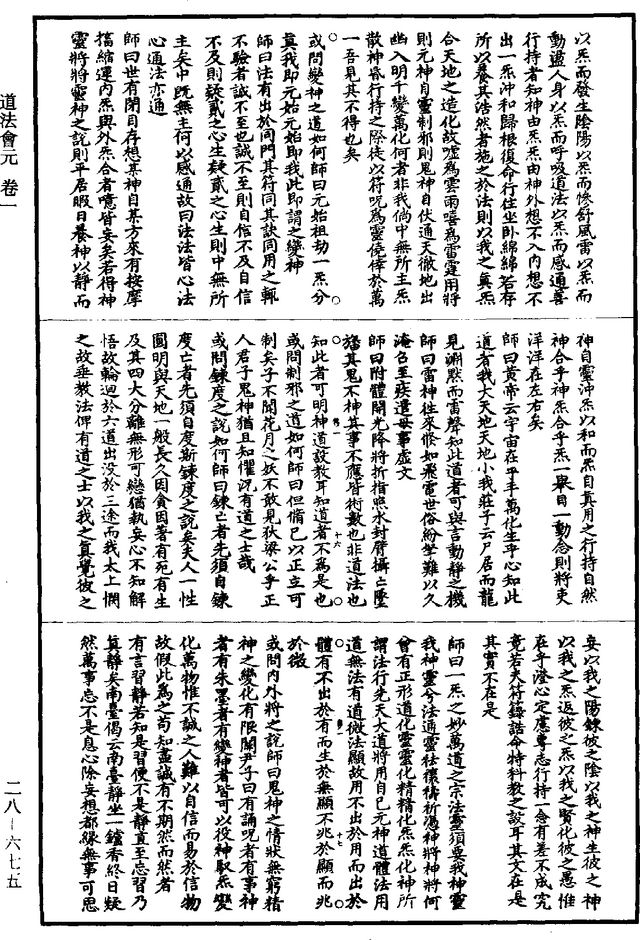 道法會元　卷一
以炁而發生陰陽以炁而慘舒風雷以炁而
動盪人身以炁而呼吸道法以炁而感通善
行持者知神由炁炁由神外想不入內想不
出一炁沖和歸根復命行住坐卧綿綿若存
所以養其浩然者施之於法則以我之真炁
合天地之造化故噓為雲雨嘻為雷霆用將
則元神自靈制邪則鬼神自伏通天徹地出
幽入明千變萬化何者非我倘中無所主炁
散神昏行持之際徒以符呪為靈倖倖於萬
一吾見其不得也矣
或問變神之道如何師曰元始祖劫一炁分
真我即元始元始即我此即謂之變神
師曰法有出於同門其符同其訣同用之輒
不驗者誠不至也誠不至則自信不及自信
不及則疑貳之心生疑貳之心生則中無所
主矣中既無主何以感通故曰法法皆心法
心通法亦通
師曰世有閉目存想某神自某方來有按摩
搐縮運內炁與外炁合者噫皆妄矣若得神
靈將將靈神之說則平居暇日養神以靜而
神自靈沖炁以和而炁自真用之行持自然
神合乎神炁合乎炁一舉目一動念則將吏
洋洋在左右矣
師曰黃帝云宇宙在乎手萬化生乎心知此
道者我大天地天地小我莊子云尸居而龍
見淵默而雷聲知此道者可與言動靜之機
師曰雷神往來倏如飛電世俗紛坐難以久
淹召至疾遣毋事虛文
師曰附體開光降將折指照水封臂攝亡墜
旛其鬼不神其事不應皆術數也非道法也
知此者可明神道設教耳知道者不為是也
或問制邪之道如何師曰但脩已以正立可
制矣子不聞花月之妖不敢見狄梁公乎正
人君子鬼神猶且知懼況有道之士哉
或問鍊度之說如何師曰鍊亡者先須自鍊
度亡者先須自度斯鍊度之說矣夫人一性
圓明與天地一般長久因貪因著有死有生
及其四大分離無形可戀猶執妄心不知解
悟故輪迴於六道出没於三途而我太上憫
之故垂教法俾有道之士以我之真覺彼之
妄以我之陽鍊彼之陰以我之神生彼之神
以我之炁返彼之炁以我之賢化彼之愚惟
在乎澄心定慮專志行持一念有差不成究
竟若夫符籙誥命特科教之設耳其文在是
其實不在是
師曰一炁之妙萬道之宗法靈須要我神靈
我神靈兮法通靈祛禳禱祈憑神將神將何
曾有正形道化靈靈化精精化炁炁化神所
謂法行先天大道將用自己元神道體法用
道無法有道微法顯故用不出於用而出於
體有不出於有而生於無顯不兆於顯而兆
於微
或問內外將之說師曰鬼神之情狀無窮精
神之變化有限關尹子曰有誦呪者有事神
者有朱墨者有變神者皆可以役神取炁變
化萬物惟不誠之人難以自信而易於信物
故假此為之苟知盡誠有不期然而然者
有言習靜若知是習便不是靜直至忘習乃
真靜矣南臺偈云南臺靜坐一鑪香終日凝
然萬事忘不是息心除妄想都緣無事可思
二八－六七五